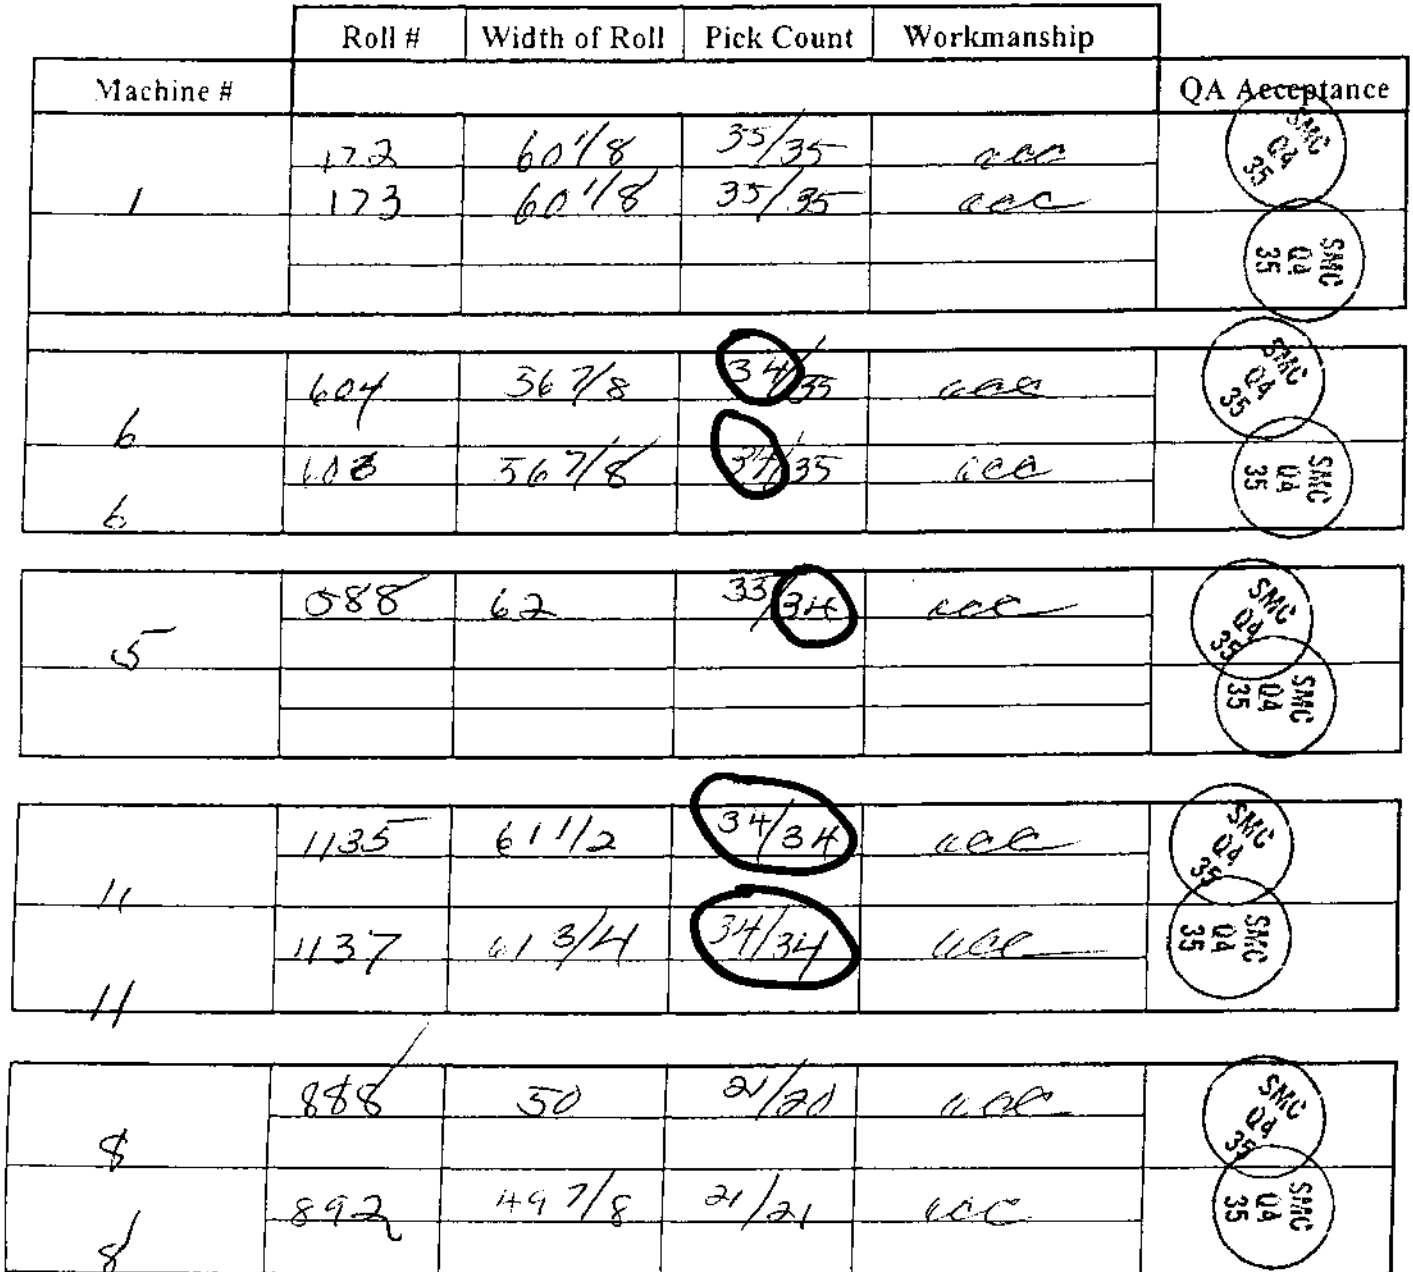 Roll # Width of Roll Pick Count Workmanship
Machine # QA Acceptance
172 60 1/8 35/35 acc SMC QA 35
1 173 60 1/8 35/35 acc
SMC QA 35
604 56 7/8 34/35 acc SMC QA 35
6
56 7/8 34/35 acc SMC QA 35
6
088 62 34 acc SMC QA 35
5
SMC QA 35
1135 61 1/2 34/34 acc SMC QA 35
11
1137 61 3/4 34/34 acc SMC QA 35
11
888 50 21/20 acc SMC QA 35
8
892 49 7/8 21/21 acc SMC QA 35
8